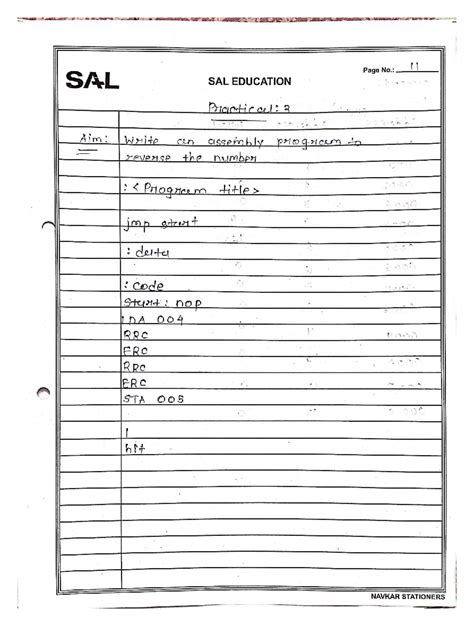 Page No.: 11
SAL
SAL EDUCATION
Practical: 3
Aim: Write an assembly program to
reverse the number
: < Program title>
jmp start
: data
: code
Start: nop
LDA 004
RRC
RRC
RRC
RRC
STA 005
hlt
NAVKAR STATIONERS